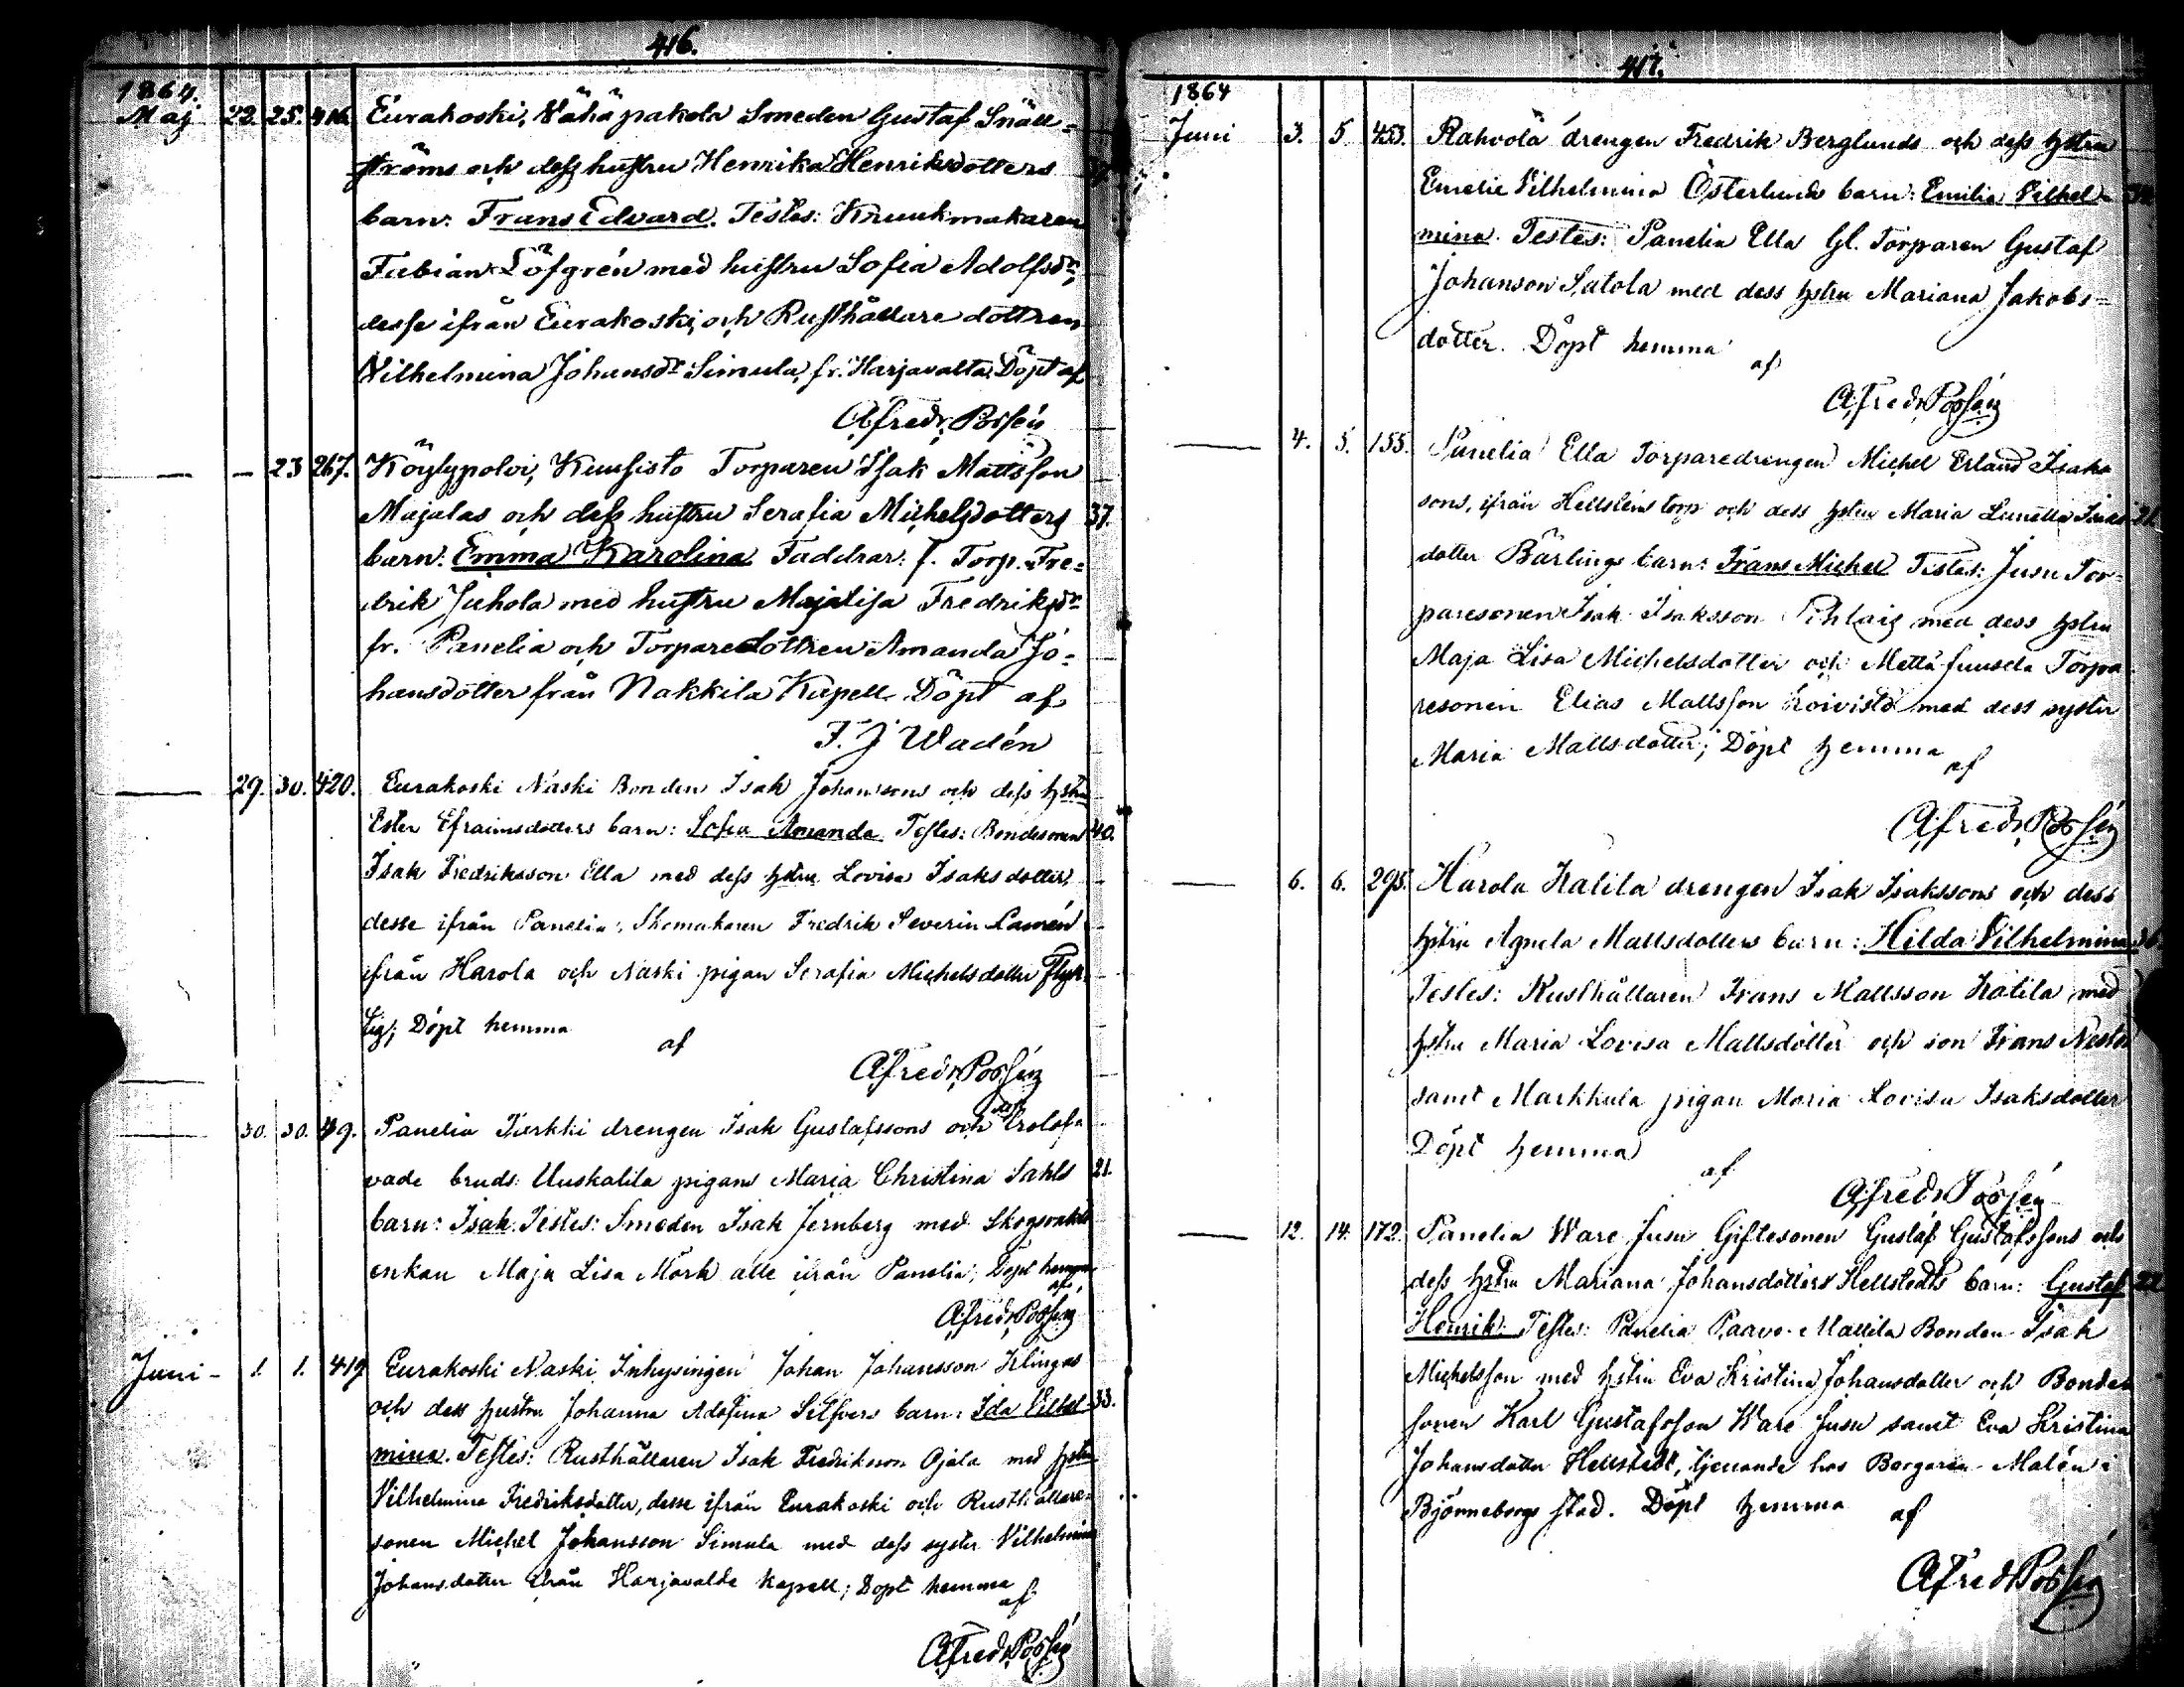 416.
1864.
Maj 23. 25. 416. Eurakoski, Vähäpakola Smeden Gustaf Snäll=
ströms och dess hustru Henrika Henriksdotters
barn: Frans Edvard. Testes: Krukmakaren
Fabian Löfgrén med hustru Sofia Adolfsdr,
desse ifrån Eurakoski, och Rusthållare dottren
Vilhelmina Johansdr Simula, fr. Harjavalta. Döpt af
Afredr. Possén
— — 23 267. Köylypolvi, Kuusisto Torparen Isak Mattsson
Majalas och dess hustru Serafia Michelsdotters 37.
barn: Emma Karolina. Faddrar: f. Torp. Fre=
drik Juhola med hustru Majalisa Fredriksdr
fr. Panelia och Torparedottren Amanda Jo=
hansdotter från Nakkila Kapell. Döpt af
F. J Wadén
— 29. 30. 420. Eurakoski Naski Bonden Isak Johanssons och dess hstru
Ester Efraimsdotters barn: Sofia Amanda Testes: Bondesonen 40.
Isak Fredriksson Ella med dess hstru Lovisa Isaksdotter,
desse ifrån Panelia, Skomakaren Fredrik Severin Lamrén
ifrån Harola och Naski pigan Serafia Michelsdotter Flyk=
tig; Döpt hemma
af
Afredr. Possén
— 30. 30. 49. Panelia Tarkki drengen Isak Gustafssons och dess trolofa
vade bruds Uuskalila pigans Maria Christina Sahls 21.
barn: Isak. Testes: Smeden Isak Jernberg med Skogsvakts
enkan Maja Lisa Mörk alle ifrån Panelia; Döpt hemma
af
Afredr. Possén
Juni - 1. 1. 419 Eurakoski Naski Inhysingen Johan Johansson Klingas
och dess hustru Johanna Adolfina Silfvers barn: Ida Vilhel 33.
mina. Testes: Rusthållaren Isak Fredriksson Ojala med hstru
Vilhelmina Fredriksdotter, desse ifrån Eurakoski och Rusthållare=
sonen Michel Johansson Simula med dess syster Vilhelmina
Johansdotter ifrån Harjavalda kapell; Döpt hemma
af
Afredr. Possén
417.
1864
Juni 3. 5. 453. Rahvola drengen Fredrik Berglunds och dess hstru
Emelie Vilhelmina Österlunds barn: Emilia Vilhel=
mina. Testes: Panelia Ella Gl. Torparen Gustaf
Johanson Satola med dess hstru Mariana Jakobs=
dotter. Döpt hemma
af
Afredr. Possén
— 4. 5. 155. Panelia Ella Torparedrengen Michel Erland Isaks
sons, ifrån Hellstens torp och dess hstru Maria Isaks
dotter Bärlings barn: Frans Michel Testes: Jusu Tor=
paresonen Isak Isaksson med dess hstru
Maja Lisa Michelsdotter och Torpa
resonen Elias Mattsson Koivisto med dess syster
Maria Mattsdotter; Döpt hemma
af
Afredr. Possén
— 6. 6. 295. Harola Kalila drengen Isak Isakssons och dess
hstru Agneta Mattsdotters barn: Hilda Vilhelmina
Testes: Rusthållaren Frans Mattsson Kalila med
hstru Maria Lovisa Mattsdotter och son Frans Nestor
samt Markkula pigan Maria Lovisa Isaksdotter
Döpt hemma
af
Afredr. Possén
— 12. 14. 172. Panelia Ware Jusu Giftesonen Gustaf Gustafssons och
dess hstru Mariana Johansdotters Hellstedts barn: Gustaf 22
Henrik. Testes: Panelia Paavo-Mattila Bonden Isak
Michelsson med hstru Eva Kristina Johansdotter och Bonde
sonen Karl Gustafsson Ware Jusu samt Eva Kristina
Johansdotter Hellstedt, tjenande hos Borgaren Malén i
Björneborgs stad. Döpt hemma
af
Afredr. Possén